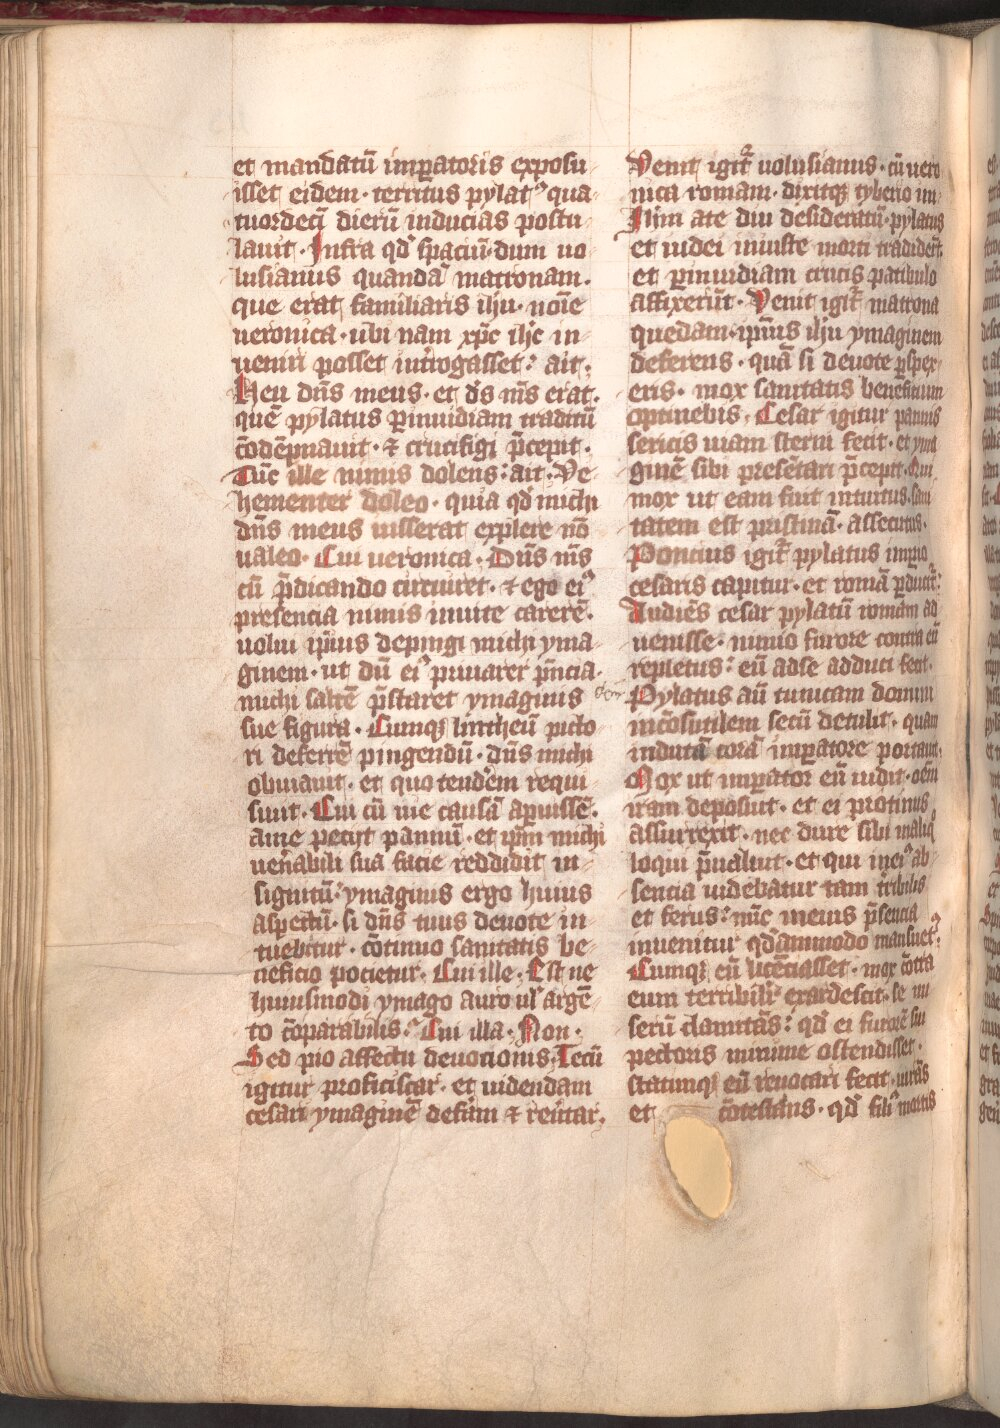 et mandatū imp̱atoris exposu
isset eidem · territus pylatꝰ qua
tuordecī dierū inducias postu
lauit · Infra qd̓ spaciū · dum uo
lusianus quandā matronam ·
que erat familiaris ihu · noīe
ueronica · ubi nam xp̄c ihc̄ in
ueniri posset int̓rogasset : ait ·
Heu dn̄s meus · et ds̄ ms̄ erat ·
quē pylatus p̱inuidiam traditū
ꝯ̄dēpnauit · ⁊ crucifigi p̄cepit ·
Tūc ille nimis dolens : ait · Ve
hementer doleo · quia qd̓ michi
dn̄s meus iusserat explere nō
ualeo · Cui ueronica · Dn̄s ms̄
cū p̄dicando circuiret · ⁊ ego eiꝰ
presencia nimis inuite carerē ·
uolui ip̄ius depingi michi yma
ginem · ut dū eiꝰ priuarer p̄ncia ·
michi saltē p̄staret ymaginis
sue figura · Cumqꝫ lintheū picto
ri deferrē pingendū · dn̄s michi
obuiauit · et quo tenderem requi
siuit · Cui cū uie causā ap̱uissē ·
a me peciit pannū · et ip̄m michi
uen̄abili sua facie reddidit in
signitū : ymaginis ergo huius
aspectū · si dn̄s tuus deuote in
tuebitur · cōtinuo sanitatis be
neficio pocietur · Cui ille · Est ne
huiusmodi ymago auro ul̓ argē
to cōparabilis : Cui illa · Non ·
Sed pio affectu deuotionis · Tecū
igitur proficiscar · et uidendam
cesari ymaginē defam ⁊ reūtar ·
Venit igit̄ uolusianus · cū uero
nica romam · dixitqꝫ tyberio im ·
Ihm̄ a te diu desideratū · pylatus
et iudei iniuste morti tradider̄t
et p̱inuidiam crucis patibulo
affixerūt · Venit igit̄ matrona
quedam · ip̄ius ihu ymaginem
deferens · quā si deuote p̱spex
eris · mox sanitatis beneficium
optinebis · Cesar igitur pannis
sericis uiam sterni fecit · et yma
ginē sibi presētari p̄cepit · Qui
mox ut eam fuit intuitus · sani
tatem est pristinā · assecutus ·
Poncius igit̄ pylatus imp̱io
cesaris capitur · et romā p̱ducit̄ :
Audiēs cesar pylatū romam ad
uenisse · nimio furore contra eū
repletus : eū ad se adduci fecit ·
Pylatus aū tunicam domini
incōsutilem secū detulit · quam
indutā corā imp̱atore portauit ·
Mox ut imp̱ator eū uidit · oēm
iram deposuit · et ei protinus
assurrexit · nec dure sibi in aliqͦ
loqui p̄ualuit · et qui in eiꝰ ab
sencia uidebatur tam tr̄ibilis
et ferus : nūc in eius p̄sencia
inuenitur qd̓ammodo mansuetꝰ :
Cumqꝫ eū licēciasset · mox cōtra
eum terribilit̓ exardescit · se mi
serū clamitās : qd̓ ei furorē sui
pectoris minime ostendisset ·
statimqꝫ eū reuocari fecit · iurās
et cōtestans · qd̓ filiꝰ mortis